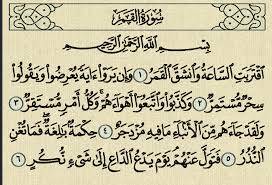 سُورَةُ القَمَرِ
بِسْمِ اللَّهِ الرَّحْمَٰنِ الرَّحِيمِ
اقْتَرَبَتِ السَّاعَةُ وَانشَقَّ الْقَمَرُ ۝١ وَإِن يَرَوْا ءَايَةً يُعْرِضُوا وَيَقُولُوا
سِحْرٌ مُّسْتَمِرٌّ ۝٢ وَكَذَّبُوا وَاتَّبَعُوا أَهْوَاءَهُمْ وَكُلُّ أَمْرٍ مُّسْتَقِرٌّ ۝٣
وَلَقَدْ جَاءَهُم مِّنَ الْأَنبَاءِ مَا فِيهِ مُزْدَجَرٌ ۝٤ حِكْمَةٌ بَالِغَةٌ فَمَا تُغْنِ
النُّذُرُ ۝٥ فَتَوَلَّ عَنْهُمْ يَوْمَ يَدْعُ الدَّاعِ إِلَىٰ شَيْءٍ نُّكُرٍ ۝٦